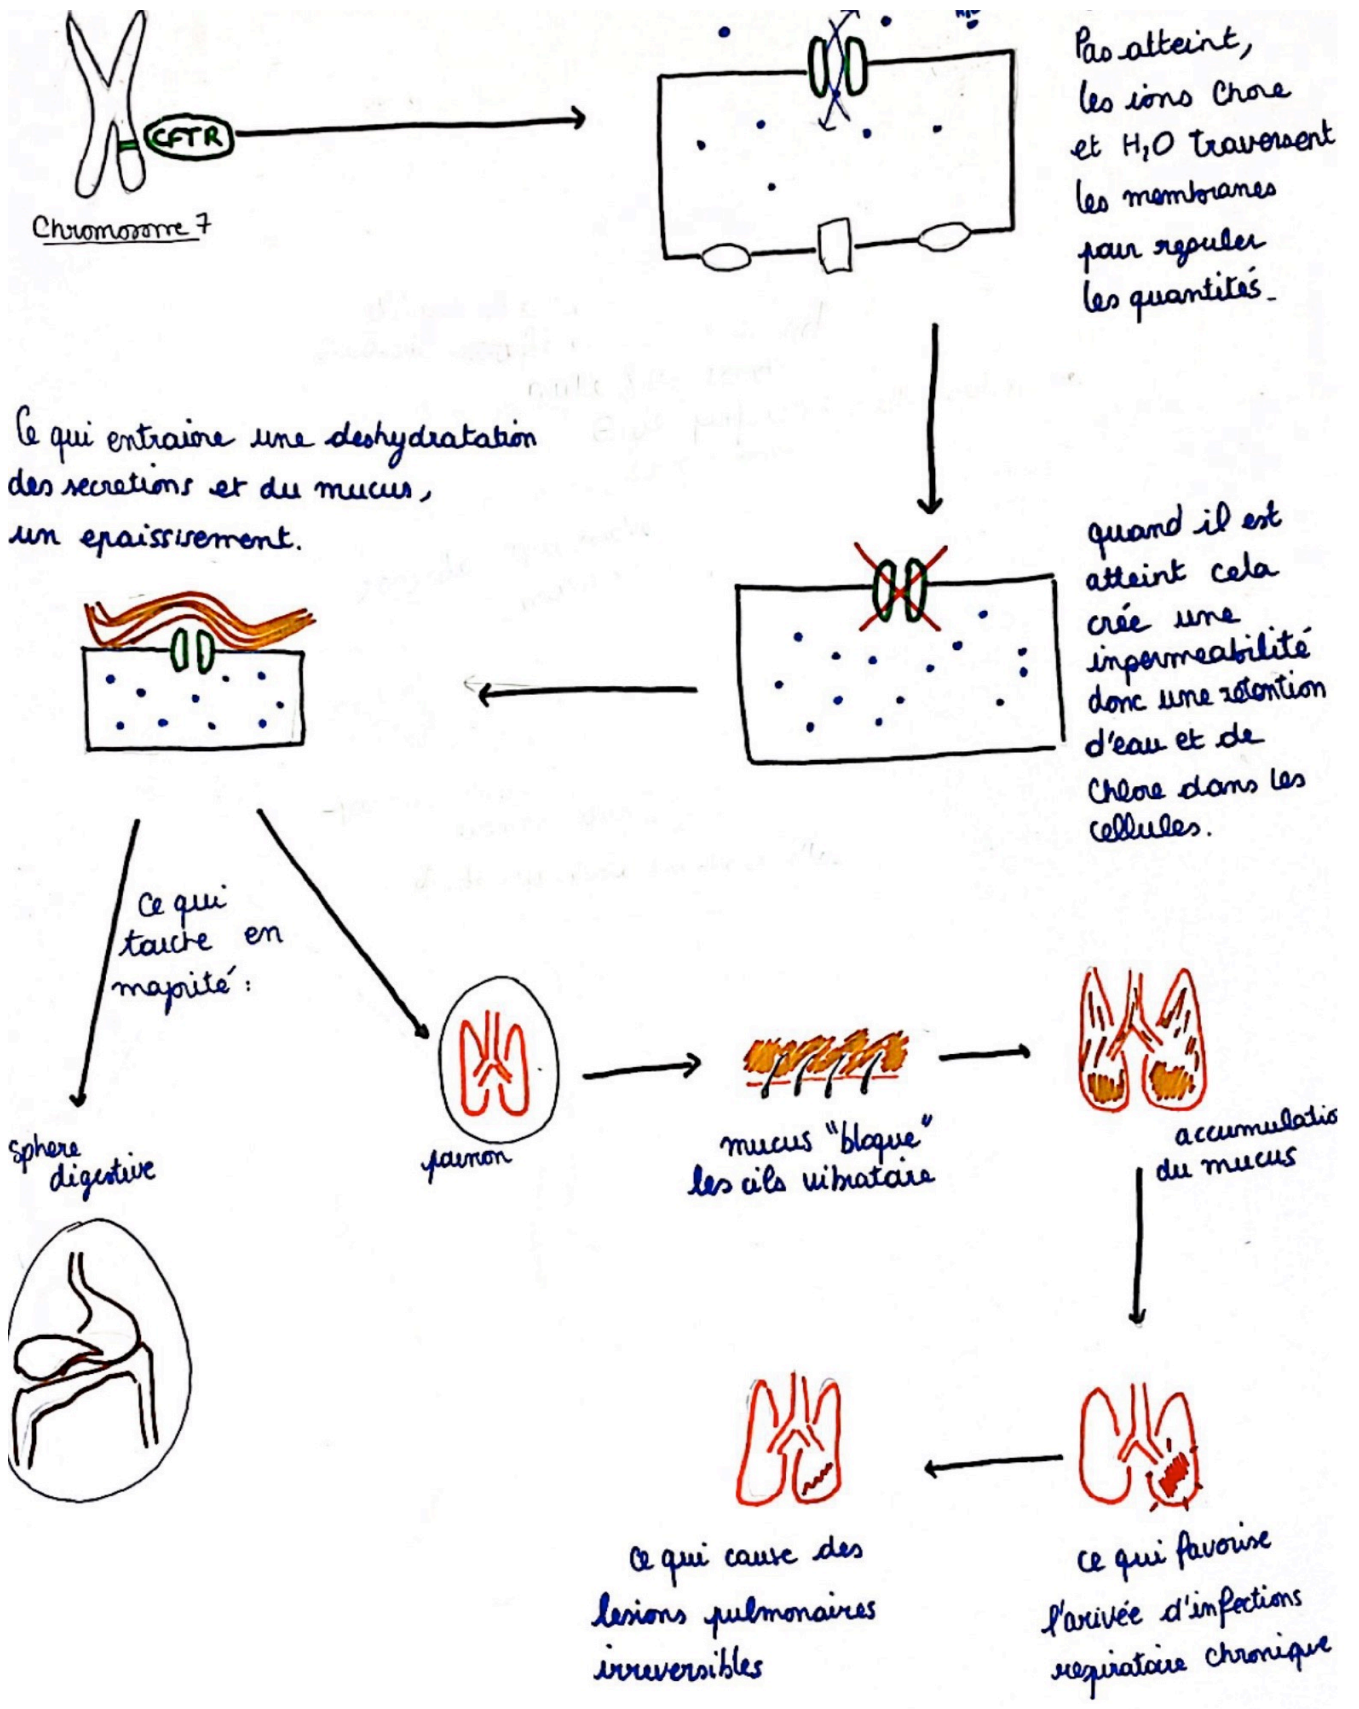 CFTR
Chromosome 7
Pas atteint,
les ions Chore
et H₂O traversent
les membranes
pour reguler
les quantités.
quand il est
atteint cela
crée une
inpermeabilité
donc une rétention
d'eau et de
Chlore dans les
cellules.
Ce qui entraine une deshydratation
des secretions et du mucus,
un epaissisement.
Ce qui
touche en
majorité :
sphere
digestive
poumon
mucus "bloque"
les cils vibrataire
accumulatio
du mucus
ce qui favorise
l'arivée d'infections
respirataire chronique
Ce qui cause des
lesions pulmonaires
irreversibles